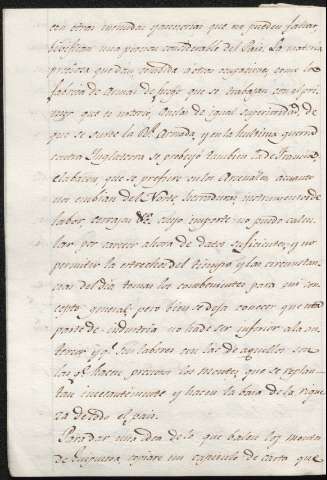 con otras menudas y acerias que no pueden faltar,
una porcion considerable del Pais. La materia
preciosa que dan combida a otras ocupaciones, como la
fabrica de Armas de fuego que se trabajan con el pri-
mor que es notorio, Anclas de igual superioridad, de
que se surte la Rl. Armada, y en la hultima guerra
contra Ynglaterra se probeyó tambien la de Francia,
clabazon, que se prefiere en los Arcenales, a cuanto
nos embian del Norte, herraduras, instrumentos de
labor, cerrajas &c. cuyo importe no puedo calcu-
lar por carecer ahora de datos suficientes, y no
permitir la estrechez del tiempo y las circunstan-
cias del dia tomar los combenientes para un con-
cepto general; pero bien se deja conocer que esta
parte de industria no ha de ser inferior a la an-
terior y qe. sin labores con las de aquellos son
las qe. hacen precisos los montes, que se replan-
tan incesantemente y hacen la basa de la rique-
za de todo el pais.
Para dar una idea de lo que balen los montes
de Guipuzcoa, copiaré un capitulo de carta que